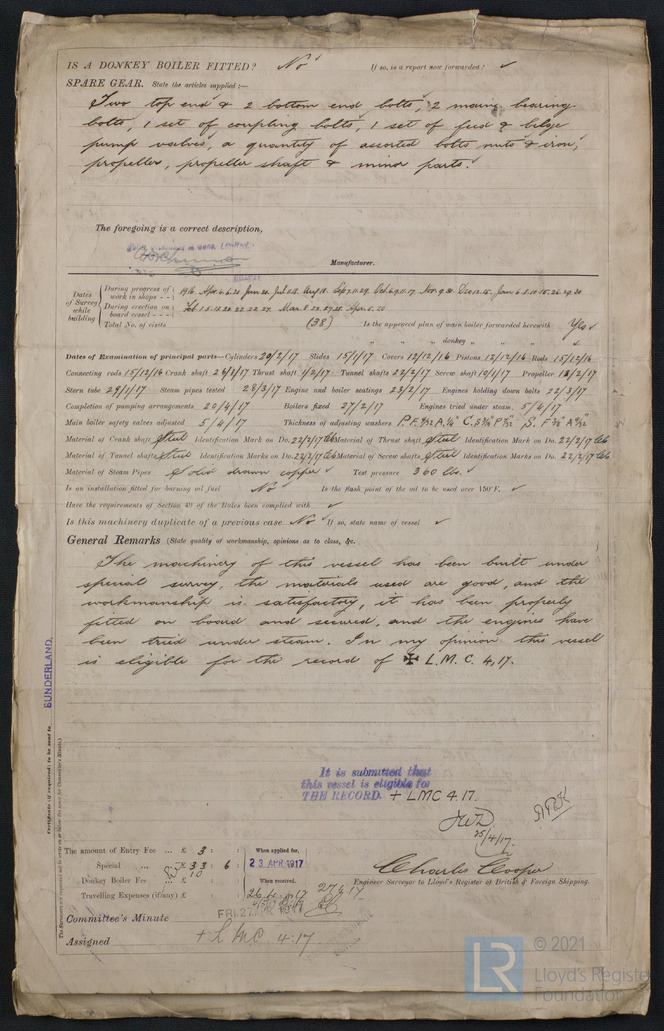 IS A DONKEY BOILER FITTED? No ✓ If so, is a report now forwarded? ✓
SPARE GEAR. State the articles supplied:—
Two top end & 2 bottom end bolts, 2 main bearing
bolts, 1 set of coupling bolts, 1 set of feed & bilge
pump valves, a quantity of assorted bolts nuts & iron,
propeller, propeller shaft & minor parts.
The foregoing is a correct description,
Manufacturer.
Dates of Survey while building
During progress of work in shops - - 1916. Apr. 4. 6. 20
During erection on board vessel - - - Feb. 1. 5. 13. 20. 22. 22. 27. Mar. 8. 22. 27. 28 Apr. 5. 20
Total No. of visits (38) Is the approved plan of main boiler forwarded herewith Yes ✓
" " " donkey " " " ✓
Dates of Examination of principal parts—Cylinders 20/2/17 Slides 15/1/17 Covers 12/12/16 Pistons 12/12/16 Rods 15/12/16
Connecting rods 15/12/16 Crank shaft Thrust shaft 1/2/17 Tunnel shafts 22/2/17 Screw shaft 10/1/17 Propeller
Stern tube 29/1/17 Steam pipes tested 28/3/17 Engine and boiler seatings 23/2/17 Engines holding down bolts 22/3/17
Completion of pumping arrangements 20/4/17 Boilers fixed 27/2/17 Engines tried under steam 5/4/17
Main boiler safety valves adjusted 5/4/17 Thickness of adjusting washers
Material of Crank shaft Steel Identification Mark on Do. 22/2/17 Material of Thrust shaft Steel Identification Mark on Do. 22/2/17
Material of Tunnel shafts Steel Identification Marks on Do. 22/2/17 Material of Screw shafts Steel Identification Marks on Do. 22/2/17
Material of Steam Pipes Solid drawn copper ✓ Test pressure 360 lbs. ✓
Is an installation fitted for burning oil fuel No ✓ Is the flash point of the oil to be used over 150°F. ✓
Have the requirements of Section 49 of the Rules been complied with ✓
Is this machinery duplicate of a previous case No ✓ If so, state name of vessel ✓
General Remarks (State quality of workmanship, opinions as to class, &c.
The machinery of this vessel has been built under
special survey, the materials used are good, and the
workmanship is satisfactory, it has been properly
fitted on board and secured, and the engines have
been tried under steam. In my opinion this vessel
is eligible for the record of ✠ L.M.C. 4,17.
SUNDERLAND.
Certificate (if required) to be sent to
It is submitted that
this vessel is eligible for
THE RECORD. + LMC 4.17.
25/4/17.
The amount of Entry Fee ... £ 3 : : When applied for,
Special ... £ 33 : 6 : 23 APR 1917
Donkey Boiler Fee ... £ : : When received,
Travelling Expenses (if any) £ : :
Charles Cooper
Engineer Surveyor to Lloyd's Register of British & Foreign Shipping.
Committee's Minute FRI. 27 APR 1917
Assigned + LMC 4.17.
© 2021
Lloyd's Register
Foundation
LR